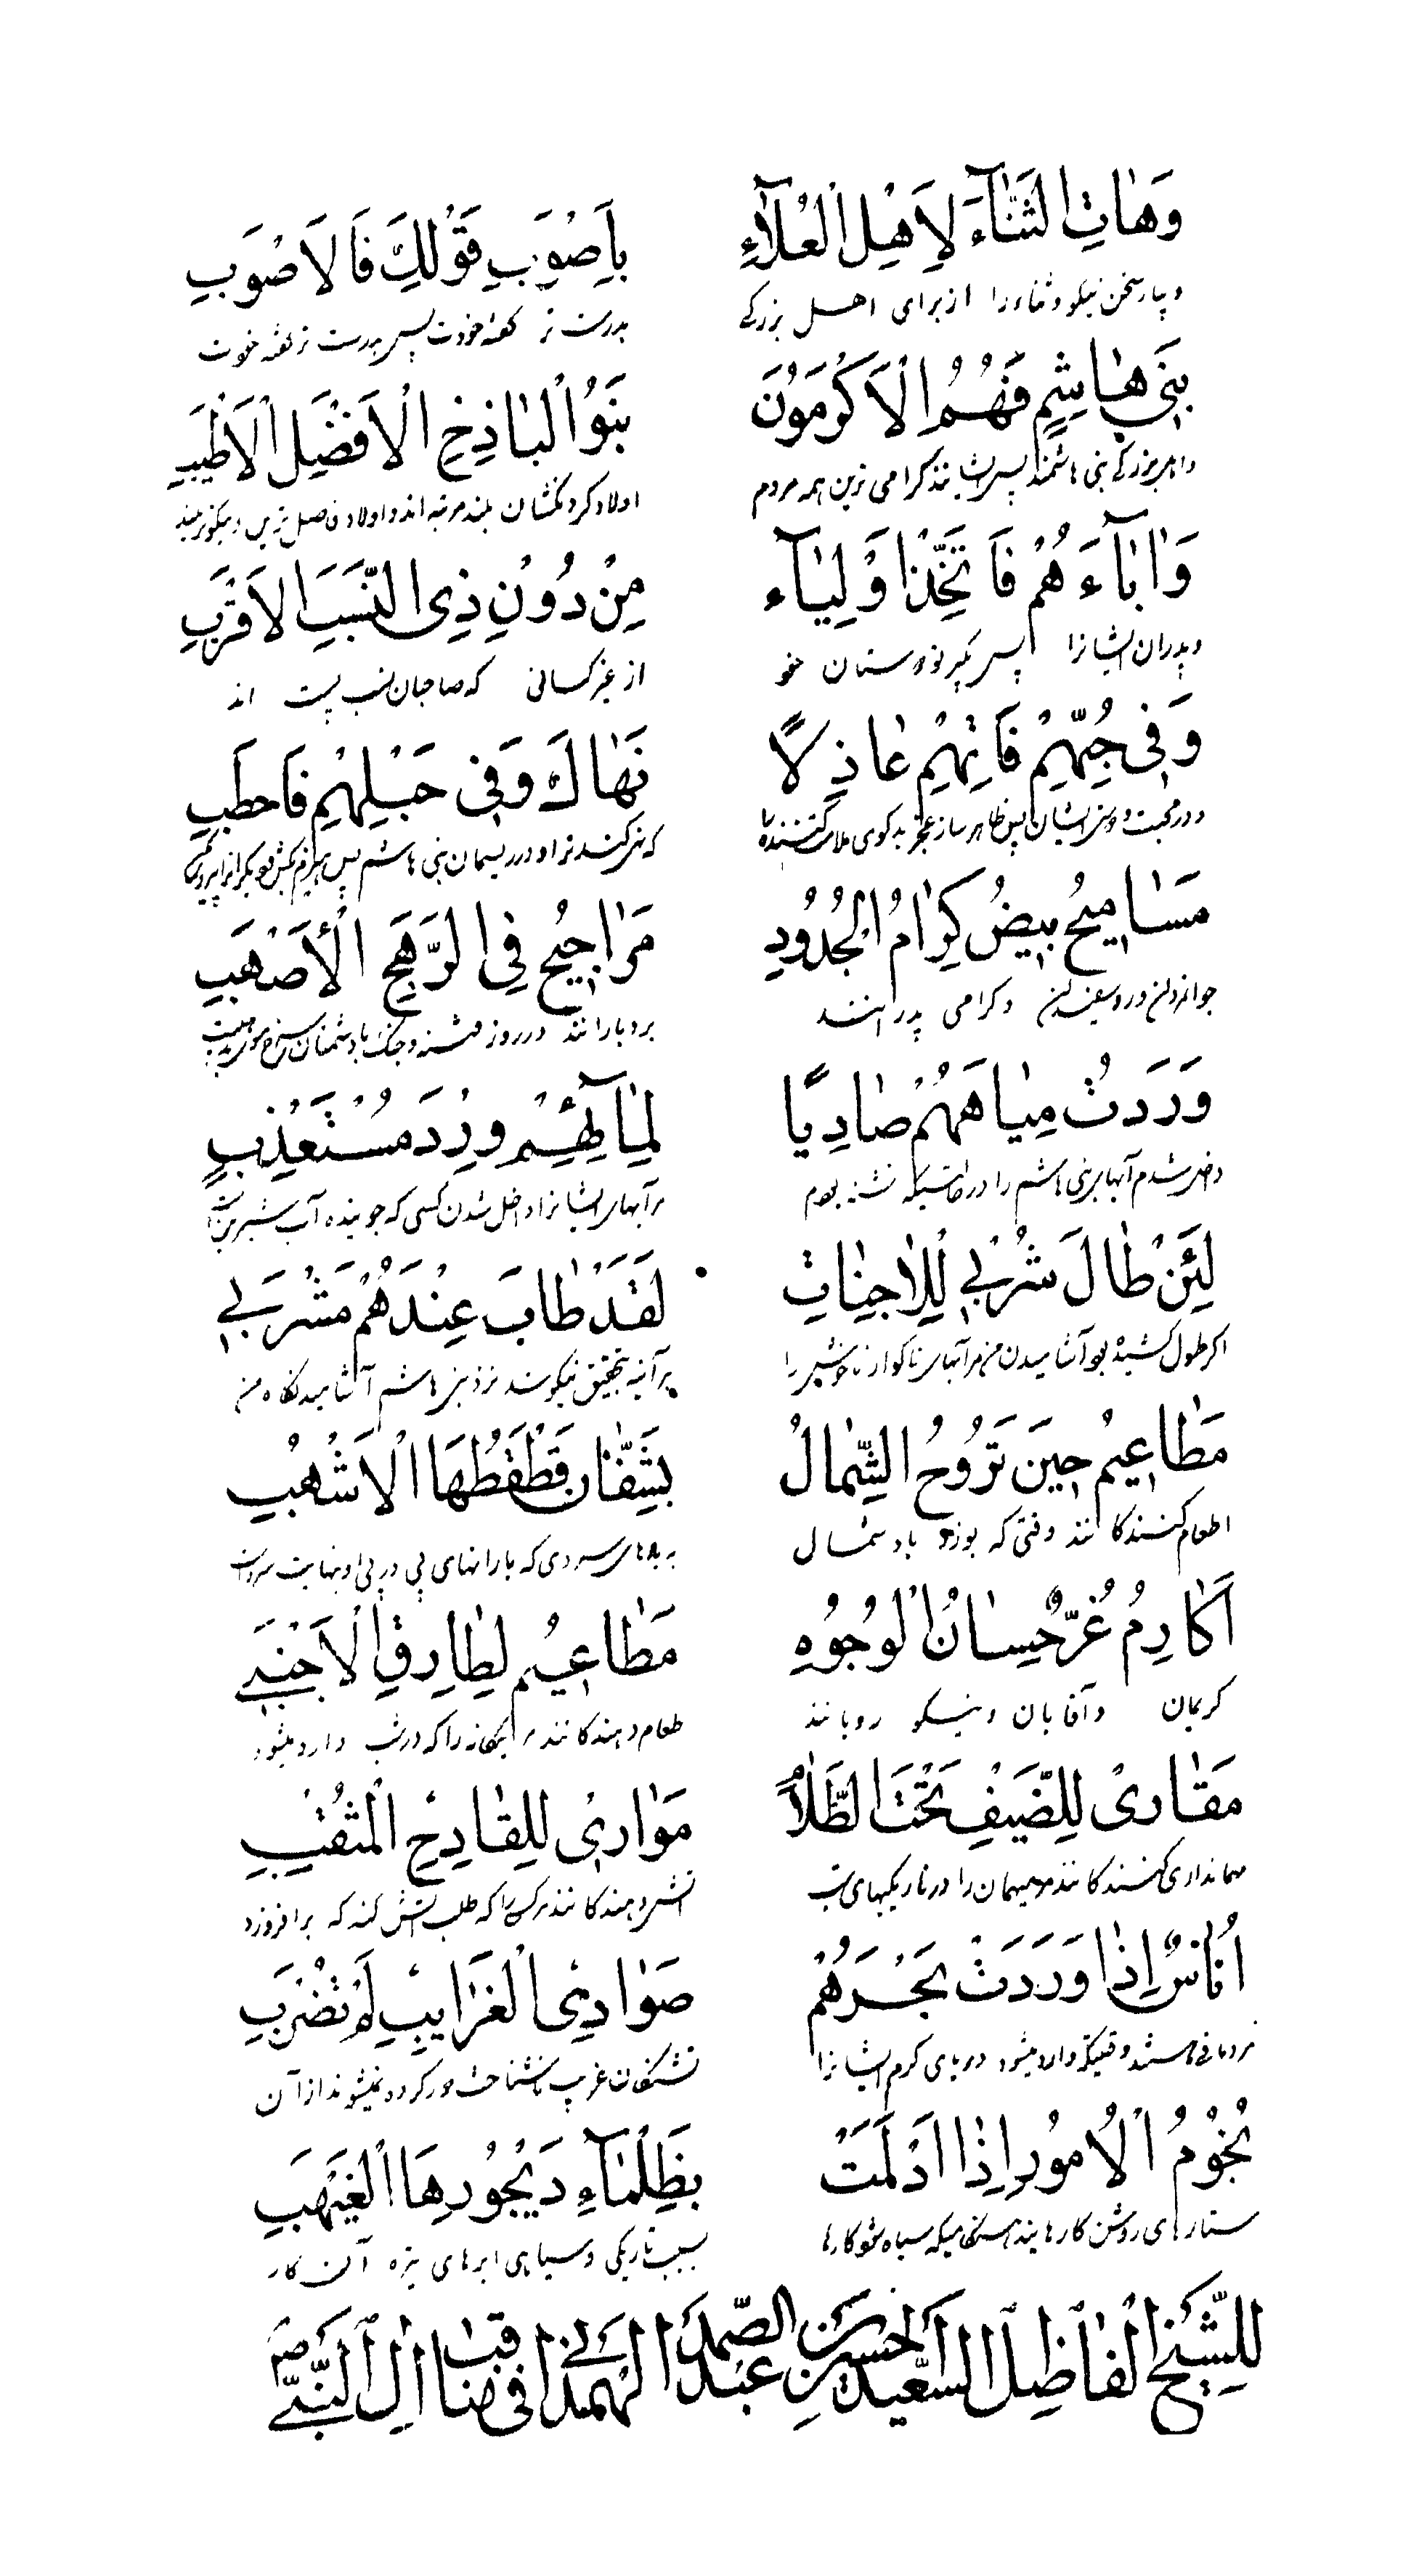 وَهٰاتِ الثَّنٰآءَ لِاَهْلِ الْعُلٰآءِ بِاَصْوَبِ قَوْلِكَ فَالاَصْوَبِ
و بیار سخن نیکو و ثناء را از برای اهل بزرکی بدرست تر کفته خودت پس بدرست تر کفته خوت
بَنِي هٰاشِمٍ فَهُمُ الْاَكْرَمُوْنَ بَنَوُا الْبٰاذِخِ الْاَفْضَلِ الْاَطْيَبِ
بنی هاشمند پس ایشانند کرامی ترین همه مردم اولاد کردنکشان بلند مرتبه اند و اولاد فاضل ترین
وَاٰبٰاءَهُمْ فَاتَّخِذْ اَوْلِيٰآءَ مِنْ دُوْنِ ذِى النَّسَبِ الاَقْرَبِ
و پدران ایشانرا پس بکیر تو دوستان خو از غیر کسانی که صاحبان نسب پست اند
وَفِى حُبِّهِمْ فَاتِهِمْ عٰاذِلًا نَهٰاكَ وَفِى حَبْلِهِمْ فَاحطَبِ
که نهی کند ترا و در ریسمان بنی هاشم پس
مَسٰامِيحُ بِيضُ كِرٰامُ الْجُدُوْدِ مَرٰاجِيحُ فِى الرَّهَجِ الْأَصْهَبِ
جوانمردان و رو سفیدان و کرامی پدرانند بردبارانند در روز فتنه و جنک با دشمنان
وَرَدَتُ مِيٰاهَهُمْ صٰادِيًا لِمٰآئِهِمْ وِرْدَ مُسْتَعْذِبٍ
داخل شدم آبهای بنی هاشم را در حالتیکه تشنه بودم بر آبهای ایشانرا داخل شدن کسی که جوینده آب شیرین
لَئِنْ طٰالَ شُرْبِي لِلْاٰجِنٰاتِ لَقَدْ طٰابَ عِنْدَهُمْ مَشْرَبِي
اکر طول کشیده بود آشامیدن من مر آبهای ناکوار را هر آینه بتحقیق نیکو شد نزد بنی هاشم آشامیدنکاه من
مَطٰاعِيمُ حِينَ تَرُوْحُ الشِّمٰالُ بِشَفّٰانِ قَطْقَطُهَا الْاَشْهَبِ
اطعام کنندکانند وقتی که بوزد باد شمال به بادهای سردی که بارانهای پی در پی او نهایت سرد
اَكٰارِمُ غُرٌّ حِسٰانُ الْوُجُوْهِ مَطٰاعِيْمُ لِطٰارِقِ الْاَجْنَبِي
کریمان و آقایان و نیکو رویانند طعام دهندکانند مر بیکانه را که در شب وارد میشود
مَقٰارِىْ لِلضَّيْفِ تَحْتَ الظَّلٰامِ مَوٰارِىْ لِلقٰادِحِ الْمُثْقِبِ
مهمانداری کنندکانند مر میهمان را در تاریکیهای شب آتش دهندکانند هر کس را که طلب آتش کند که برافروزد
اُنٰاسٌ اِذٰا وَرَدَتْ بَحْرَهُمْ صَوٰادِى الْغَرٰايِبِ لَمْ تُضْرَبِ
مردمانی هستند وقتیکه وارد میشود دریای کرم ایشانرا تشنکان غریب ناشناخت دور کرده نمیشوند از آن
نُجُوْمُ الْاُمُوْرِ اِذٰا ادْلَمَّتْ بِظَلْمٰآءِ دَيْجُوْرِهَا الْغَيْهَبِ
ستارهای روشن کارهایند هنکامیکه سیاه شو کارها بسبب تاریکی و سیاهی ابرهای تیره آن کار
لِلشَّيْخِ الْفٰاضِلِ السَّعِيْدِ الْحُسَيْنِ بْنِ عَبْدِ الصَّمَدِ الهَمْدٰانِي فى مَنٰاقِبِ اٰلِ النَّبِيِّ